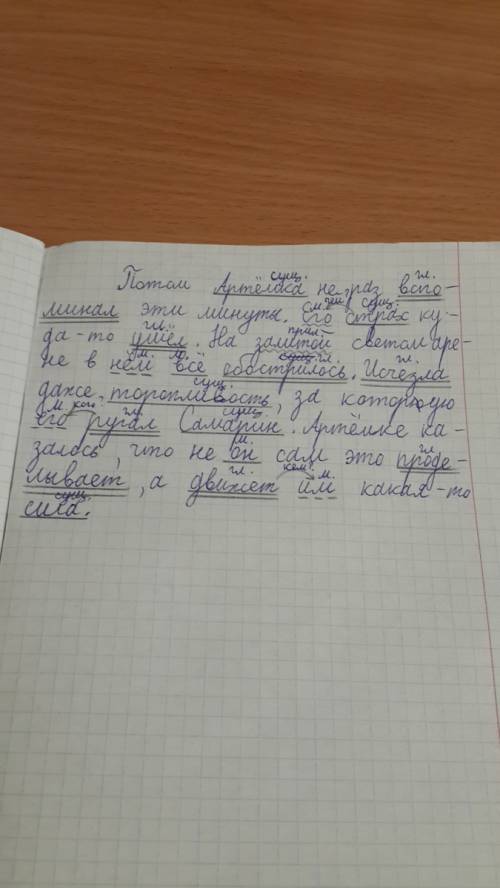 сущ. гл.
Потом Артёмка не раз вспо-
минал эти минуты. Его страх ку-
да-то ушёл. На залитой светом аре-
не в нём всё обострилось. Исчезла
даже торопливость, за которую
его ругал Самарин. Артёмке ка-
залось, что не он сам это проде-
лывает, а движет им какая-то
сила.